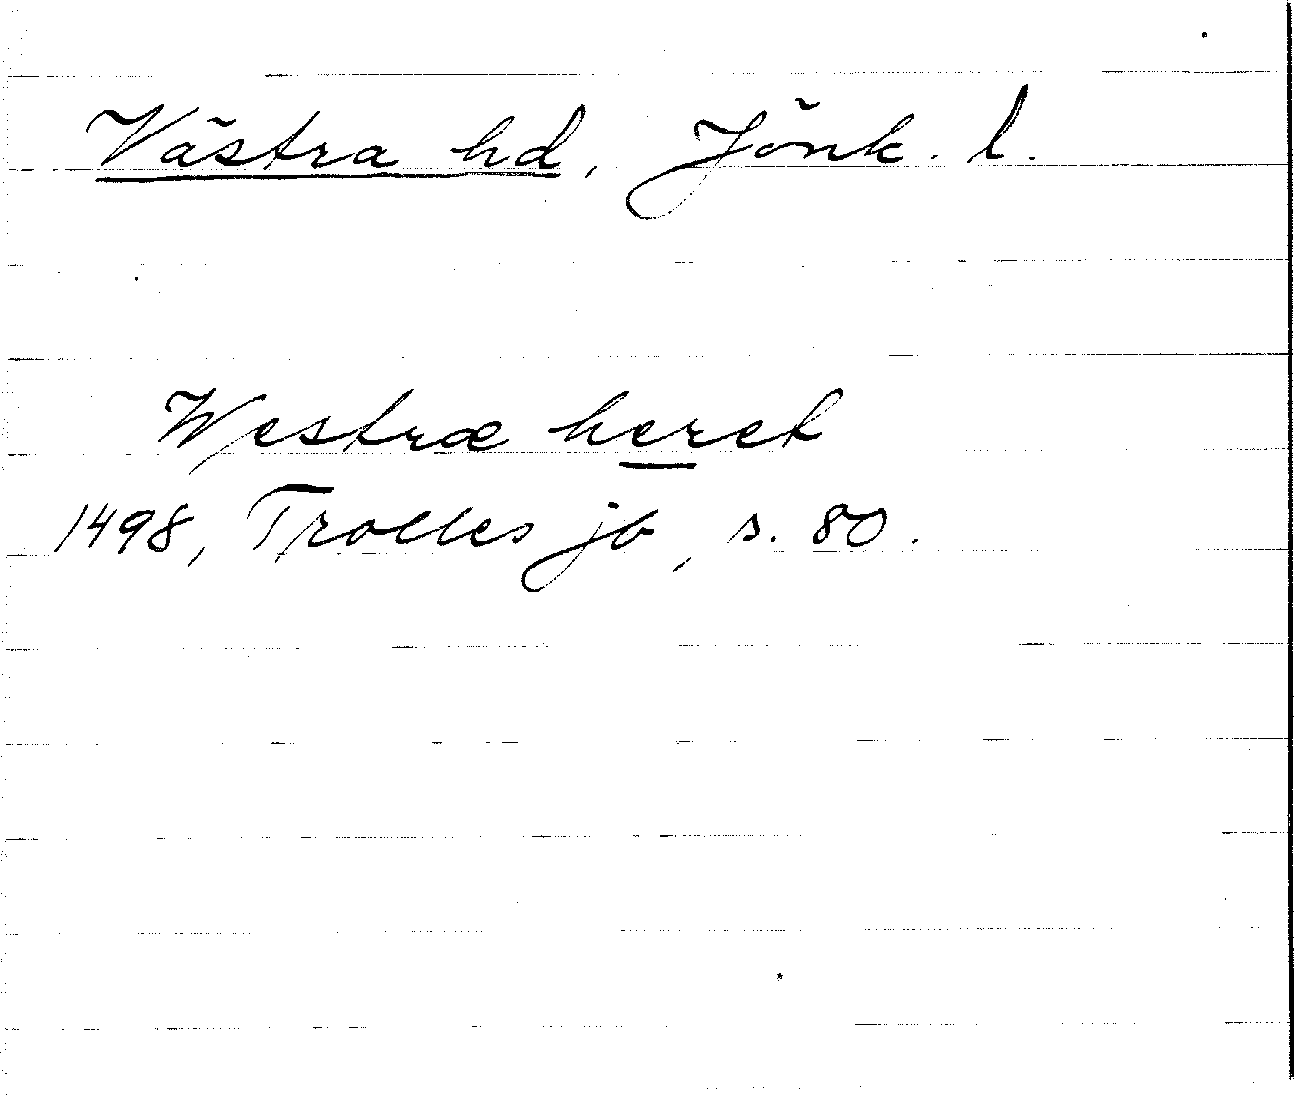 Västra hd, Jönk. l.
Westræ heret
1498, Trolles jb, s. 80.